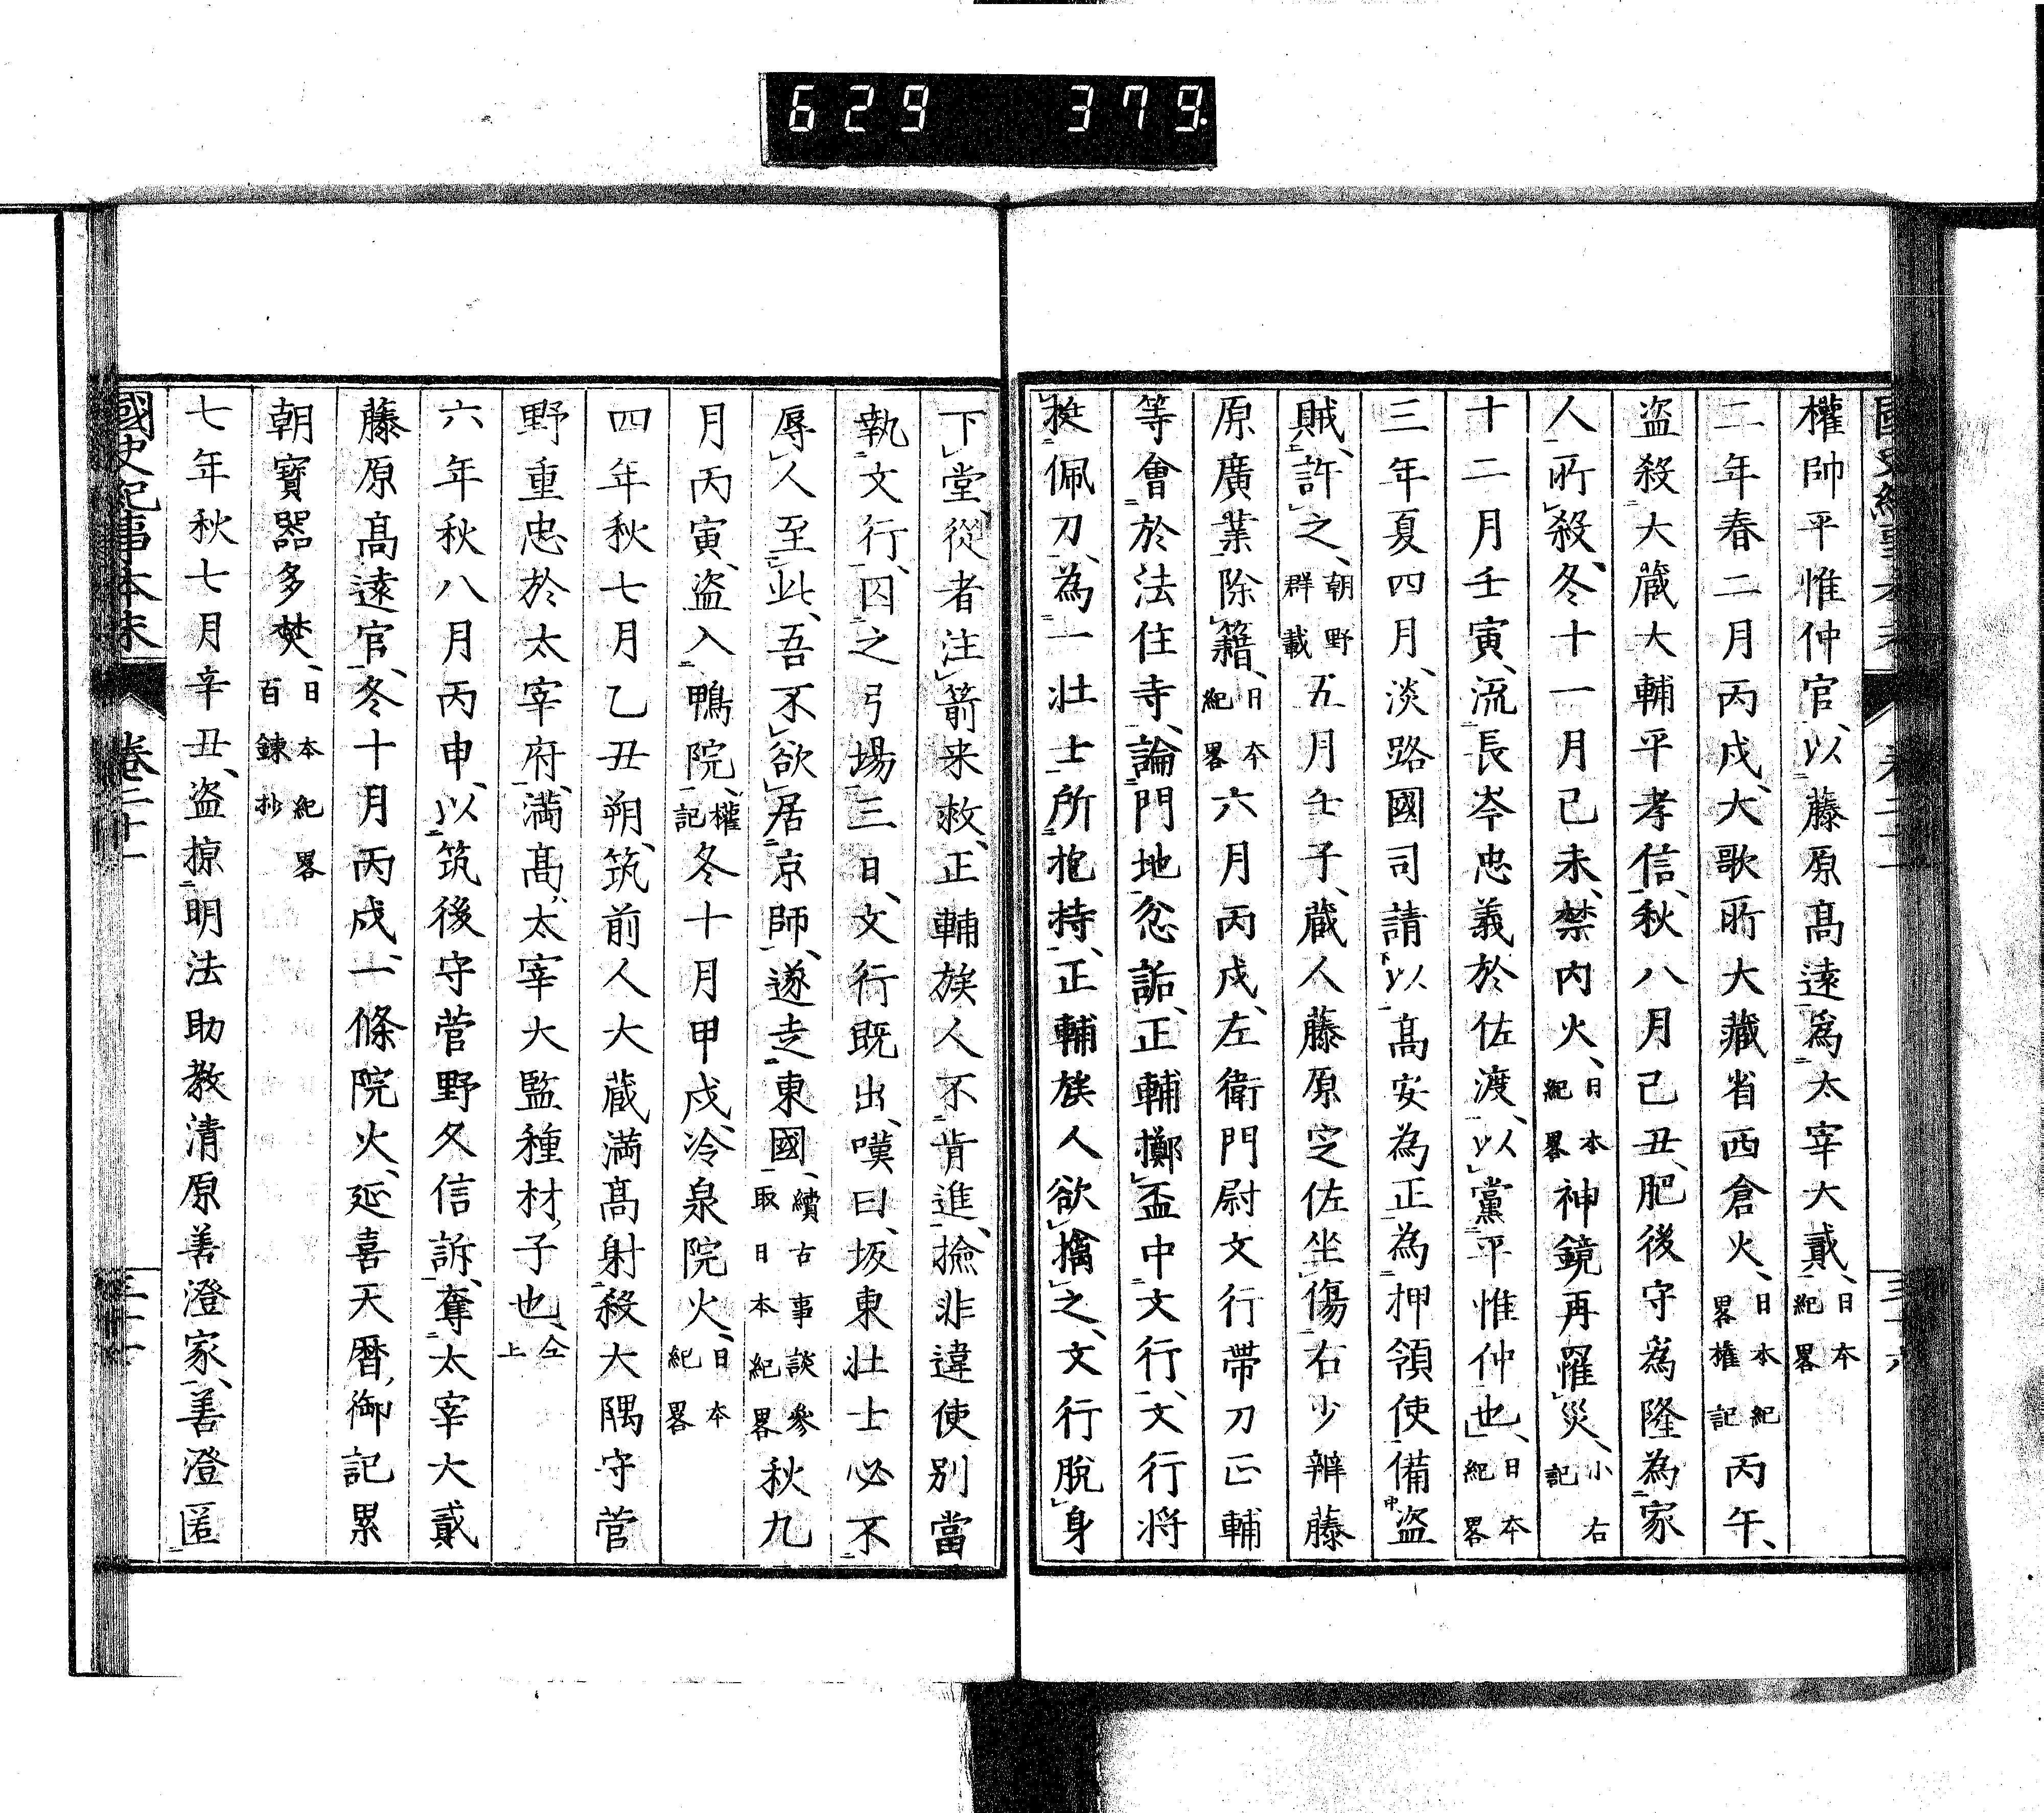 629 379.
權帥平惟仲官、以藤原髙遠爲太宰大貳、日本紀畧
二年春二月丙戌、大歌所大藏省西倉火、日本紀畧權記丙午、
盗殺大蔵大輔平孝信、秋八月己丑、肥後守爲隆為家
人所殺、冬十一月己未、禁内火、日本紀畧神鏡再罹災、小右記
十二月壬寅、流長岑忠義於佐渡、以黨平惟仲也、日本紀畧
三年夏四月、淡路國司請以髙安為正為押領使備盗
賊、許之、朝野群載五月壬子、蔵人藤原定佐坐傷右少辨藤
原廣業除籍、日本紀畧六月丙戌、左衛門尉文行帶刀正輔
等會於法住寺、論門地忿詬、正輔擲盃中文行、文行将
挺佩刀、為一壮士所抱持、正輔族人欲擒之、文行脫身
下堂、從者注箭来救、正輔族人不肯進、撿非違使別當
執文行、囚之弓場三日、文行既出、嘆曰、坂東壮士必不
辱人至此、吾不欲居京師、遂走東國、續古事談參取日本紀畧秋九
月丙寅、盗入鴨院、權記冬十月甲戌、冷泉院火、日本紀畧
四年秋七月乙丑朔、筑前人大蔵満髙射殺大隅守菅
野重忠於太宰府、満髙、太宰大監種材子也、仝上
六年秋八月丙申、以筑後守菅野久信訴、奪太宰大貳
藤原髙遠官、冬十月丙戌、一條院火、延喜天暦御記累
朝寶器多焚、日本紀畧百鍊抄
七年秋七月辛丑、盗掠明法助教清原善澄家、善澄匿
國史紀事本末 卷二十一